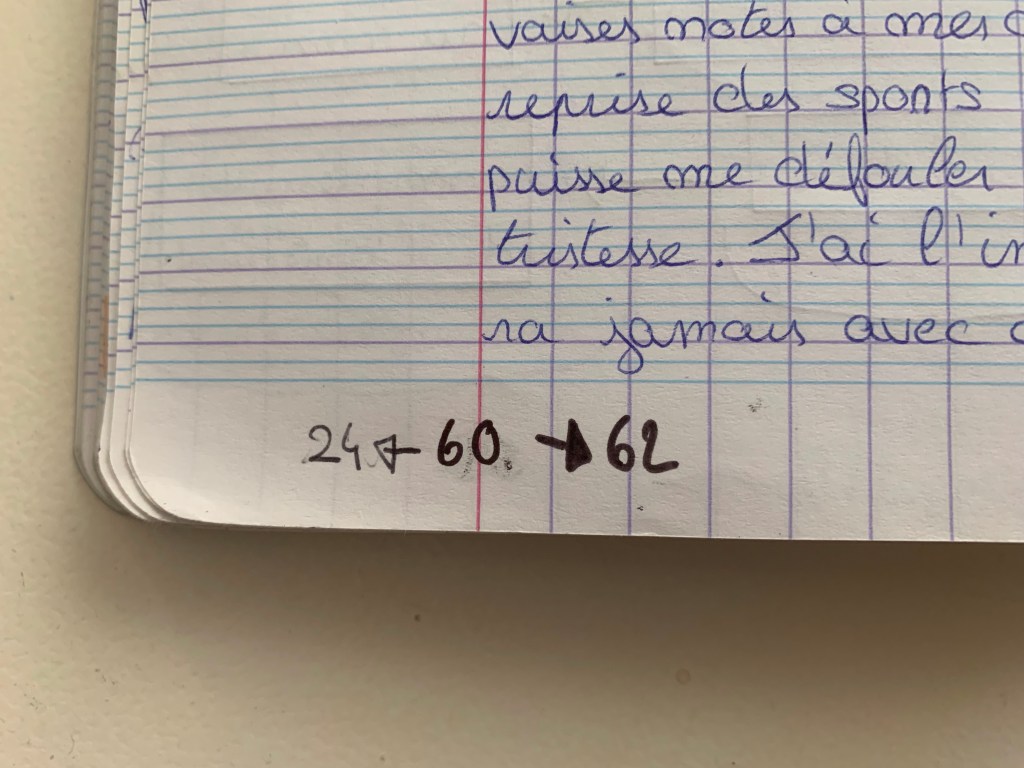 vaises notes à mes
reprise des sports
puisse me défouler
tristesse. J'ai l'im
ra jamais avec
24 ← 60 → 62